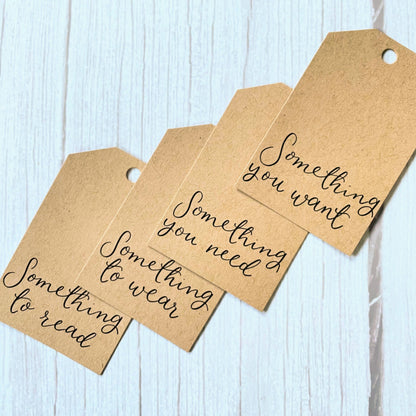 Something
you want
Something
you need
Something
to wear
Something
to read